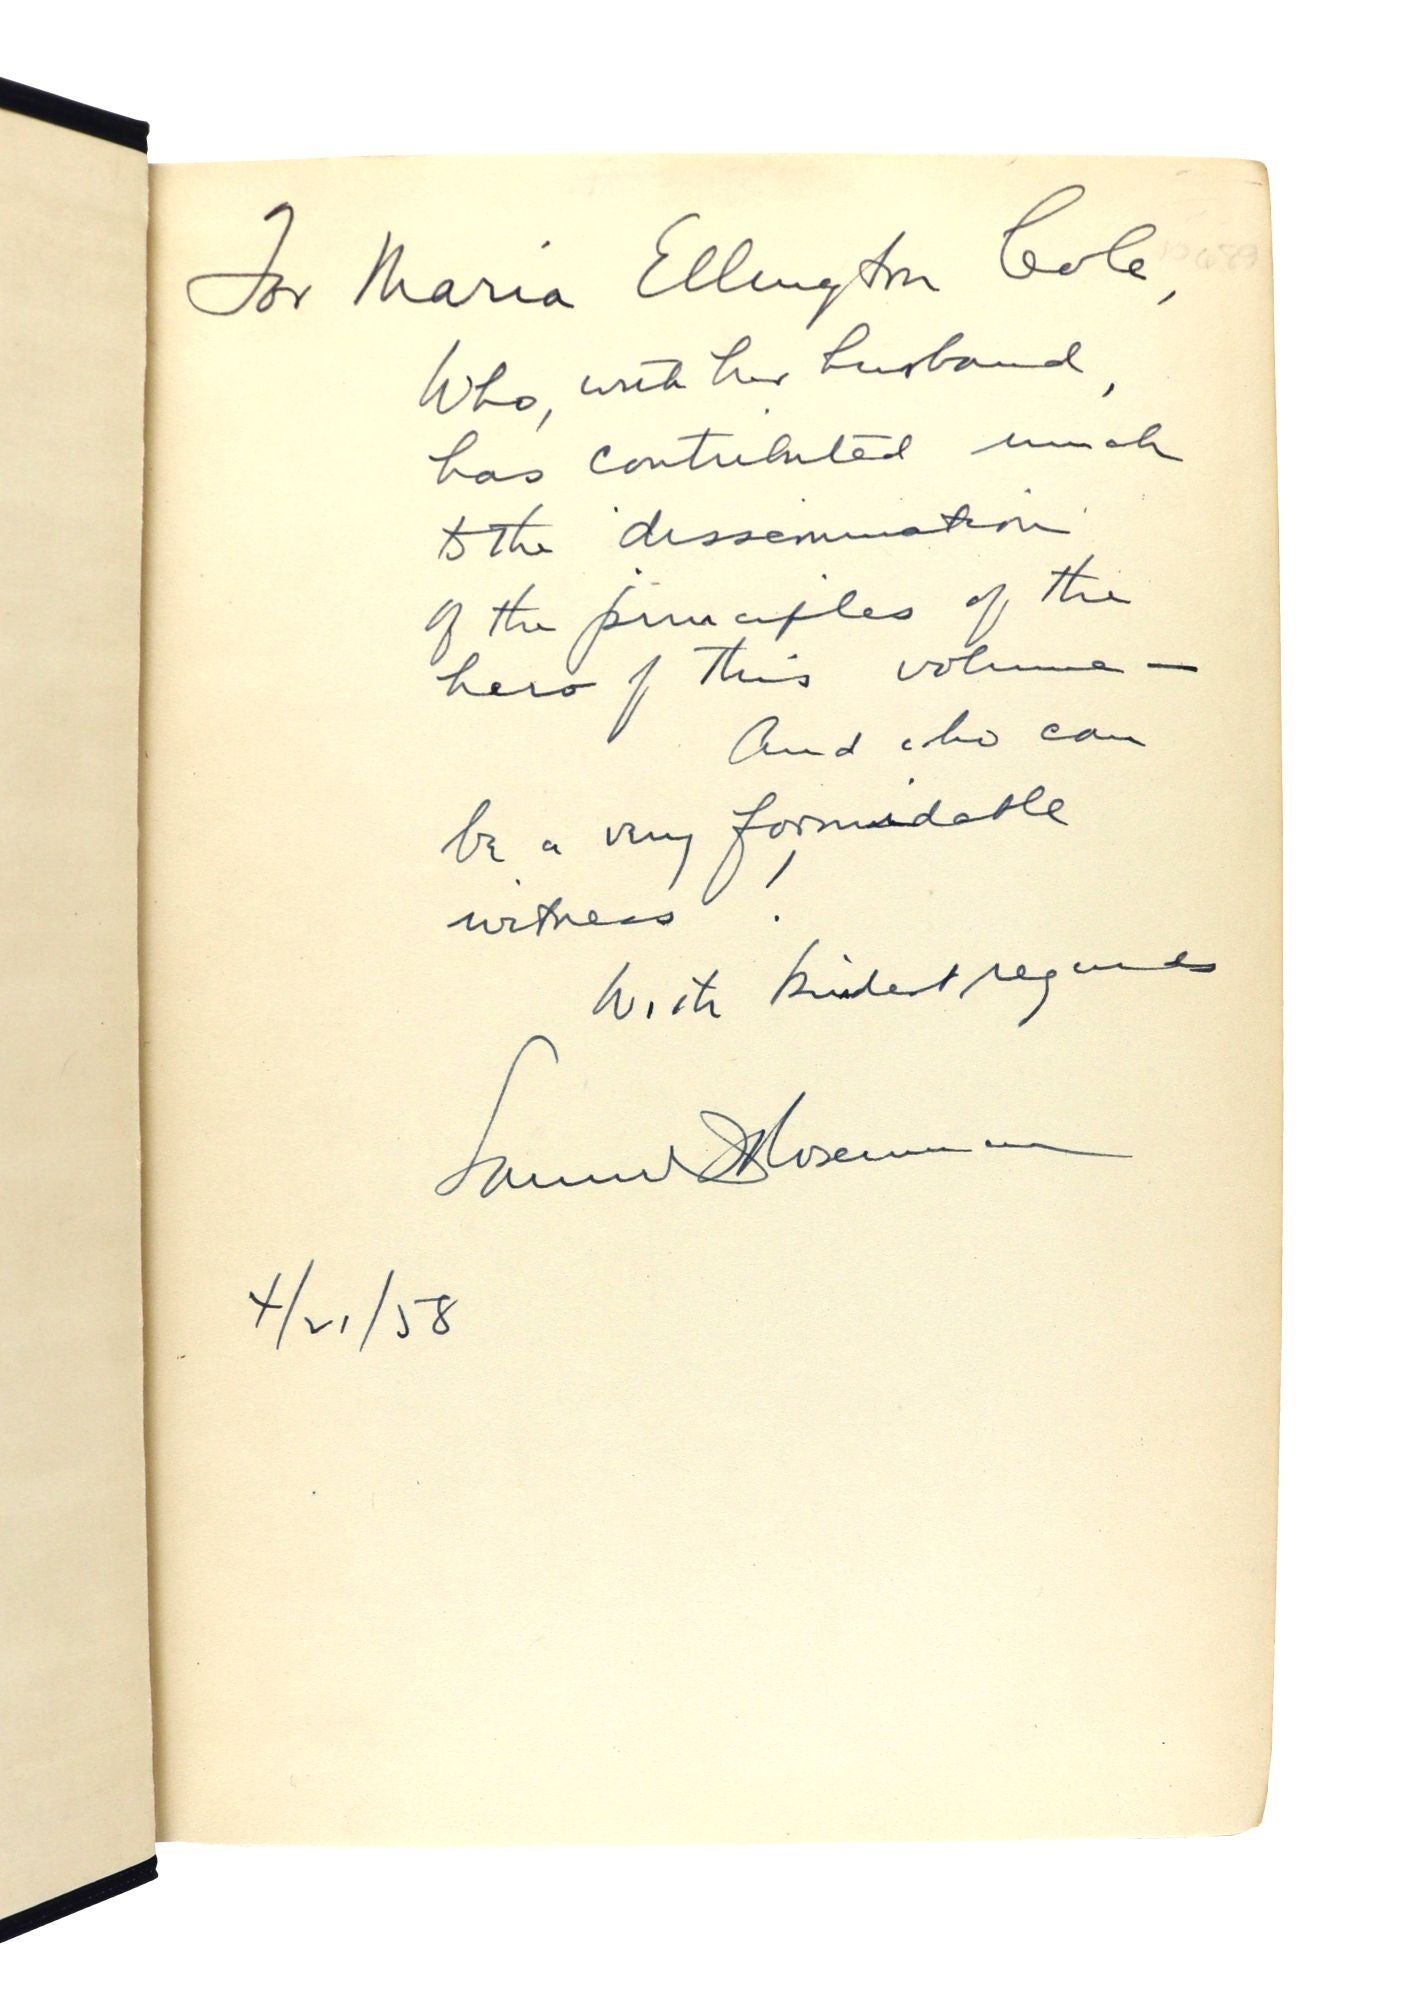 For Maria Ellington Cole,
Who, with her husband,
has contributed much
to the dissemination
of the principles of the
hero of this volume —
And who can
be a very formidable
witness!
With kindest regards
Samuel I Rosenman
4/21/58